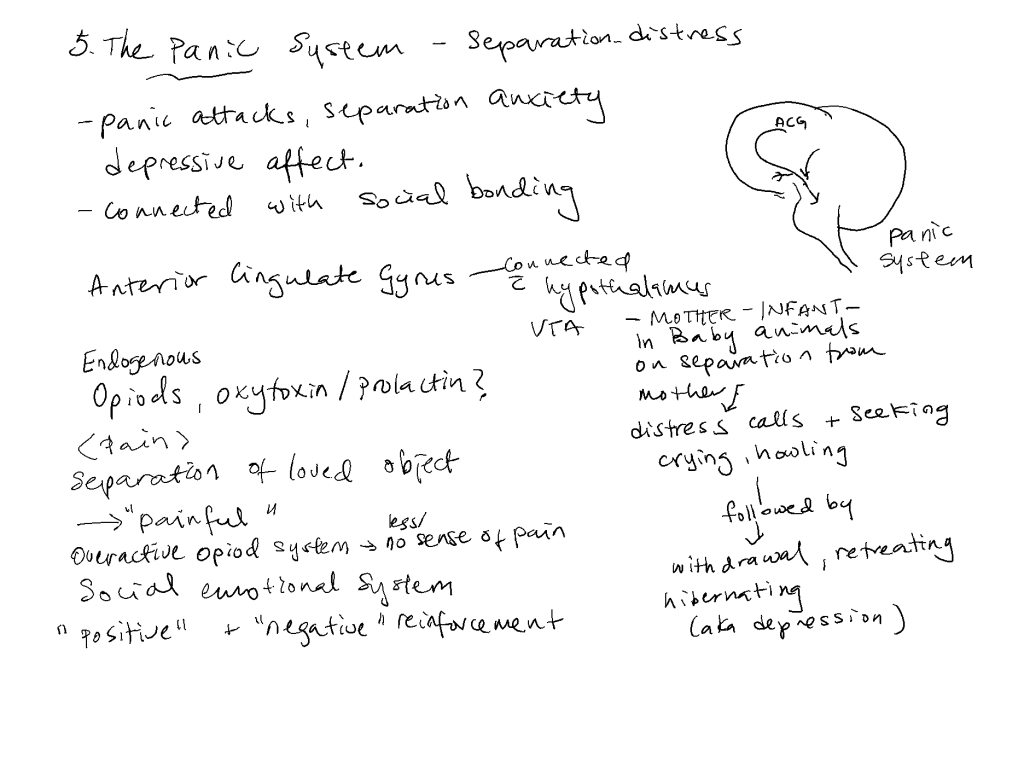 5. The Panic System - Separation-distress
- panic attacks, separation anxiety
depressive affect.
- connected with social bonding
ACG
panic
system
Anterior Cingulate Gyrus — connected
c̄ hypothalamus
VTA
- MOTHER - INFANT -
in Baby animals
on separation from
mother
distress calls + seeking
crying, howling
followed by
withdrawal, retreating
hibernating
(aka depression)
Endogenous
Opiods, oxytoxin / prolactin?
<Pain>
Separation of loved object
→ "painful"
less/
Overactive opiod system → no sense of pain
Social emotional System
"positive" + "negative" reinforcement